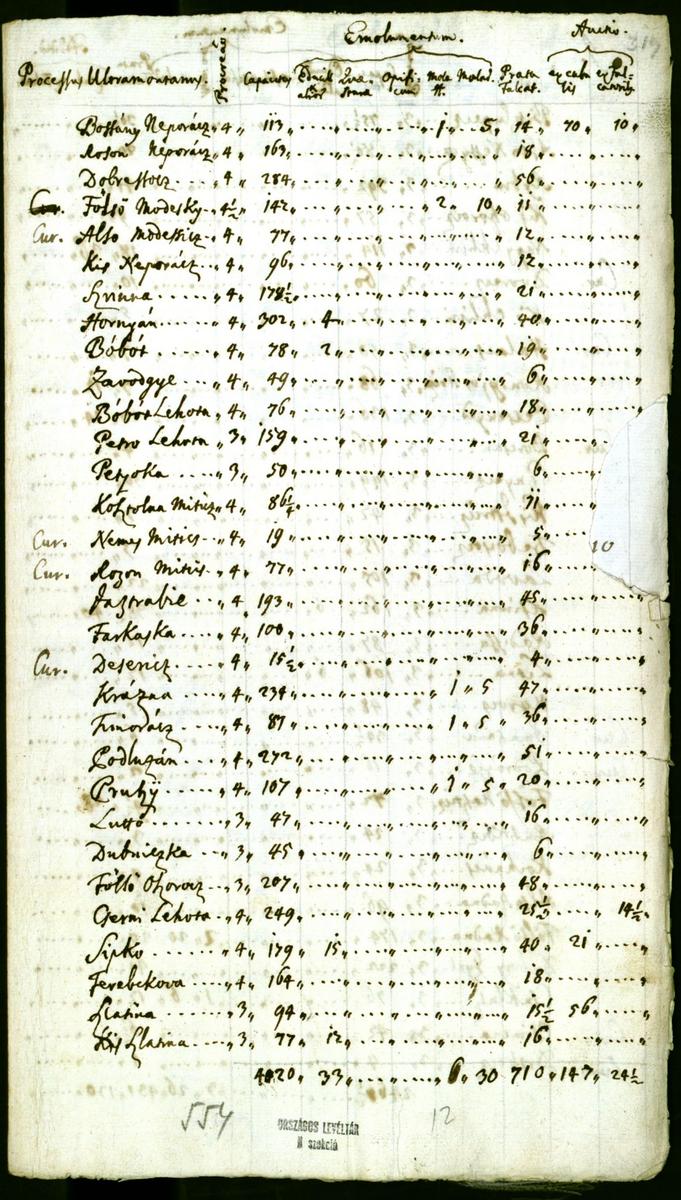 Emolumentum. Auctio.
Processus Ultramontanus. Capacites Educil Qua- Opifi- Mola Molad. Prata
stura cium ff. Falcat.
Bossány Neporácz „ 4 „ 113 „ „ „ „ 1 „ 5 „ 14 „ 70 „ 10 „
Roson Neporácz „ 4 „ 163 „ „ „ „ „ „ 18 „ „ „
Dobrassocz „ 4 „ 284 „ „ „ „ „ „ 56 „ „ „
Cur. Fölső Modesky „ 4½ „ 142 „ „ „ „ 2 „ 10 „ 11 „ „ „
Cur. Also Modessicz „ 4 „ 77 „ „ „ „ „ „ 12 „ „ „
Kis Neporácz „ 4 „ 96 „ „ „ „ „ „ 12 „ „ „
Szvinna „ 4 „ 178½ „ „ „ „ „ „ 21 „ „ „
Hornyán „ 4 „ 302 „ 4 „ „ „ „ „ 40 „ „ „
Bóbót „ 4 „ 78 „ 2 „ „ „ „ „ 19 „ „ „
Zavodgye „ 4 „ 49 „ „ „ „ „ „ 6 „ „ „
Bóbót Lehota „ 4 „ 76 „ „ „ „ „ „ 18 „ „ „
Petro Lehota „ 3 „ 159 „ „ „ „ „ „ 21 „ „
Petyoka „ 3 „ 50 „ „ „ „ „ „ 6 „ „
Kosztolna Miticz „ 4 „ 86¼ „ „ „ „ „ „ 11 „ „
Cur. Nemes Mitics „ 4 „ 19 „ „ „ „ „ „ 5 „ 10
Cur. Rozon Mitics „ 4 „ 77 „ „ „ „ „ „ 16 „ „
Jaztrabie „ 4 „ 193 „ „ „ „ „ „ 45 „ „ „
Farkaska „ 4 „ 100 „ „ „ „ „ „ 36 „ „ „
Cur. Desericz „ 4 „ 15½ „ „ „ „ „ „ 4 „ „ „
Krázna „ 4 „ 234 „ „ „ „ 1 „ 5 „ 47 „ „ „
Timorácz „ 4 „ 87 „ „ „ „ 1 „ 5 „ 36 „ „ „
Podluzán „ 4 „ 272 „ „ „ „ „ „ 51 „ „ „
Pruhÿ „ 4 „ 107 „ „ „ „ 1 „ 5 „ 20 „ „ „
Luttó „ 3 „ 47 „ „ „ „ „ „ 16 „ „ „
Dubniczka „ 3 „ 45 „ „ „ „ „ „ 6 „ „ „
Fölső Ozorocz „ 3 „ 207 „ „ „ „ „ „ 48 „ „ „
Cserni Lehota „ 4 „ 249 „ „ „ „ „ „ 25½ „ „ 14½ „
Sipko „ 4 „ 179 „ 15 „ „ „ „ „ 40 „ 21 „ „
Ferebekova „ 4 „ 164 „ „ „ „ „ „ 18 „ „ „
Szlatina „ 3 „ 94 „ „ „ „ „ „ 15½ „ 56 „ „
Kis Szlatina „ 3 „ 77 „ 12 „ „ „ „ „ 16 „ „ „
4020 „ 33 „ „ „ 6 „ 30 „ 710 „ 147 „ 24½
554 12
ORSZÁGOS LEVÉLTÁR
N szekció